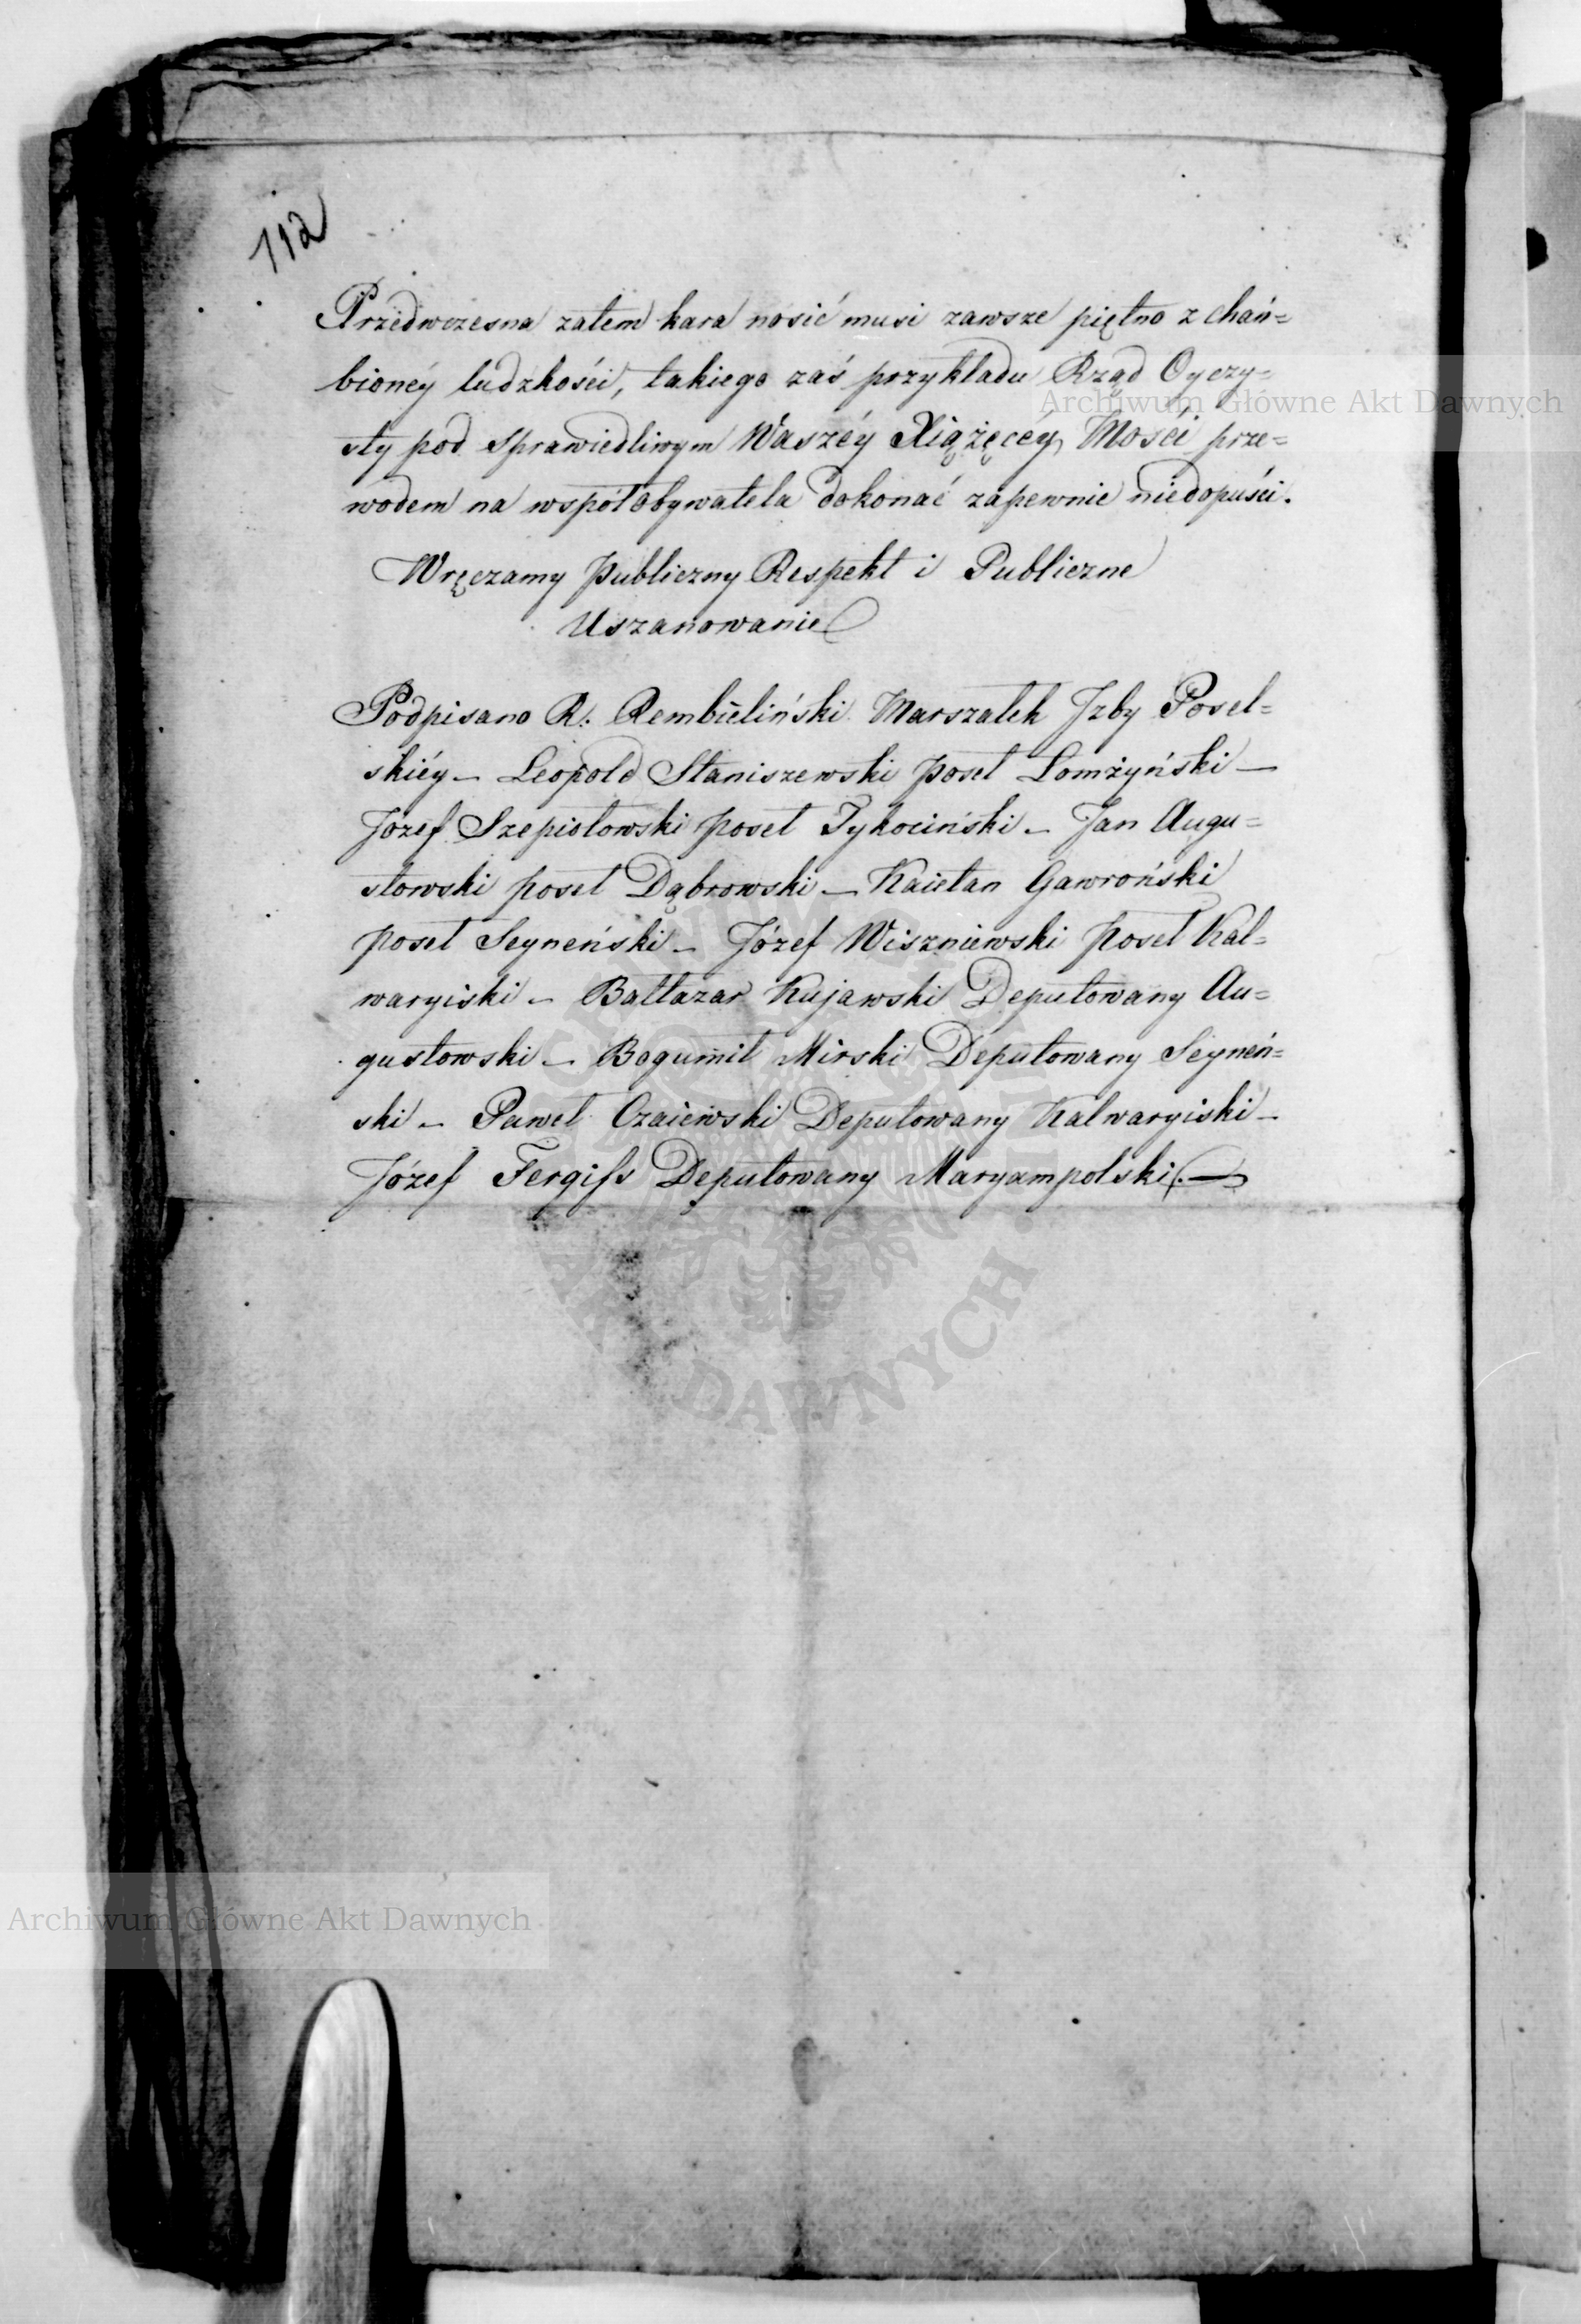 112
Przedwczesna zatem kara nosić musi zawsze piętno z chań=
bionéy ludzkośći, takiego zaś przykładu Rząd Oyczy=
sty pod Sprawiedliwym Waszéy Xiążęcey Mośći prze=
wodem na współobywatela dokonać zapewnie niedopuści.
Wręczamy Publiczny Respekt i Publiczne
Uszanowanie
Podpisano R. Rembieliński Marszałek Jzby Posel=
skiéy — Leopold Staniszewski poseł Łomżyński —
Józef Szepiotowski poseł Tykociński — Jan Augu=
stowski poseł Dąbrowski — Kaietan Gawroński
poseł Seyneński — Józef Wiszniewski poseł Kal=
waryiski — Baltazar Kujawski Deputowany Au=
gustowski — Bogumił Mirski Deputowany Seyneń=
ski — Paweł Czaiewski Deputowany Kalwaryiski —
Józef Fergiss Deputowany Maryampolski. —
Archiwum Główne Akt Dawnych
Archiwum Główne Akt Dawnych
DAWNYCH